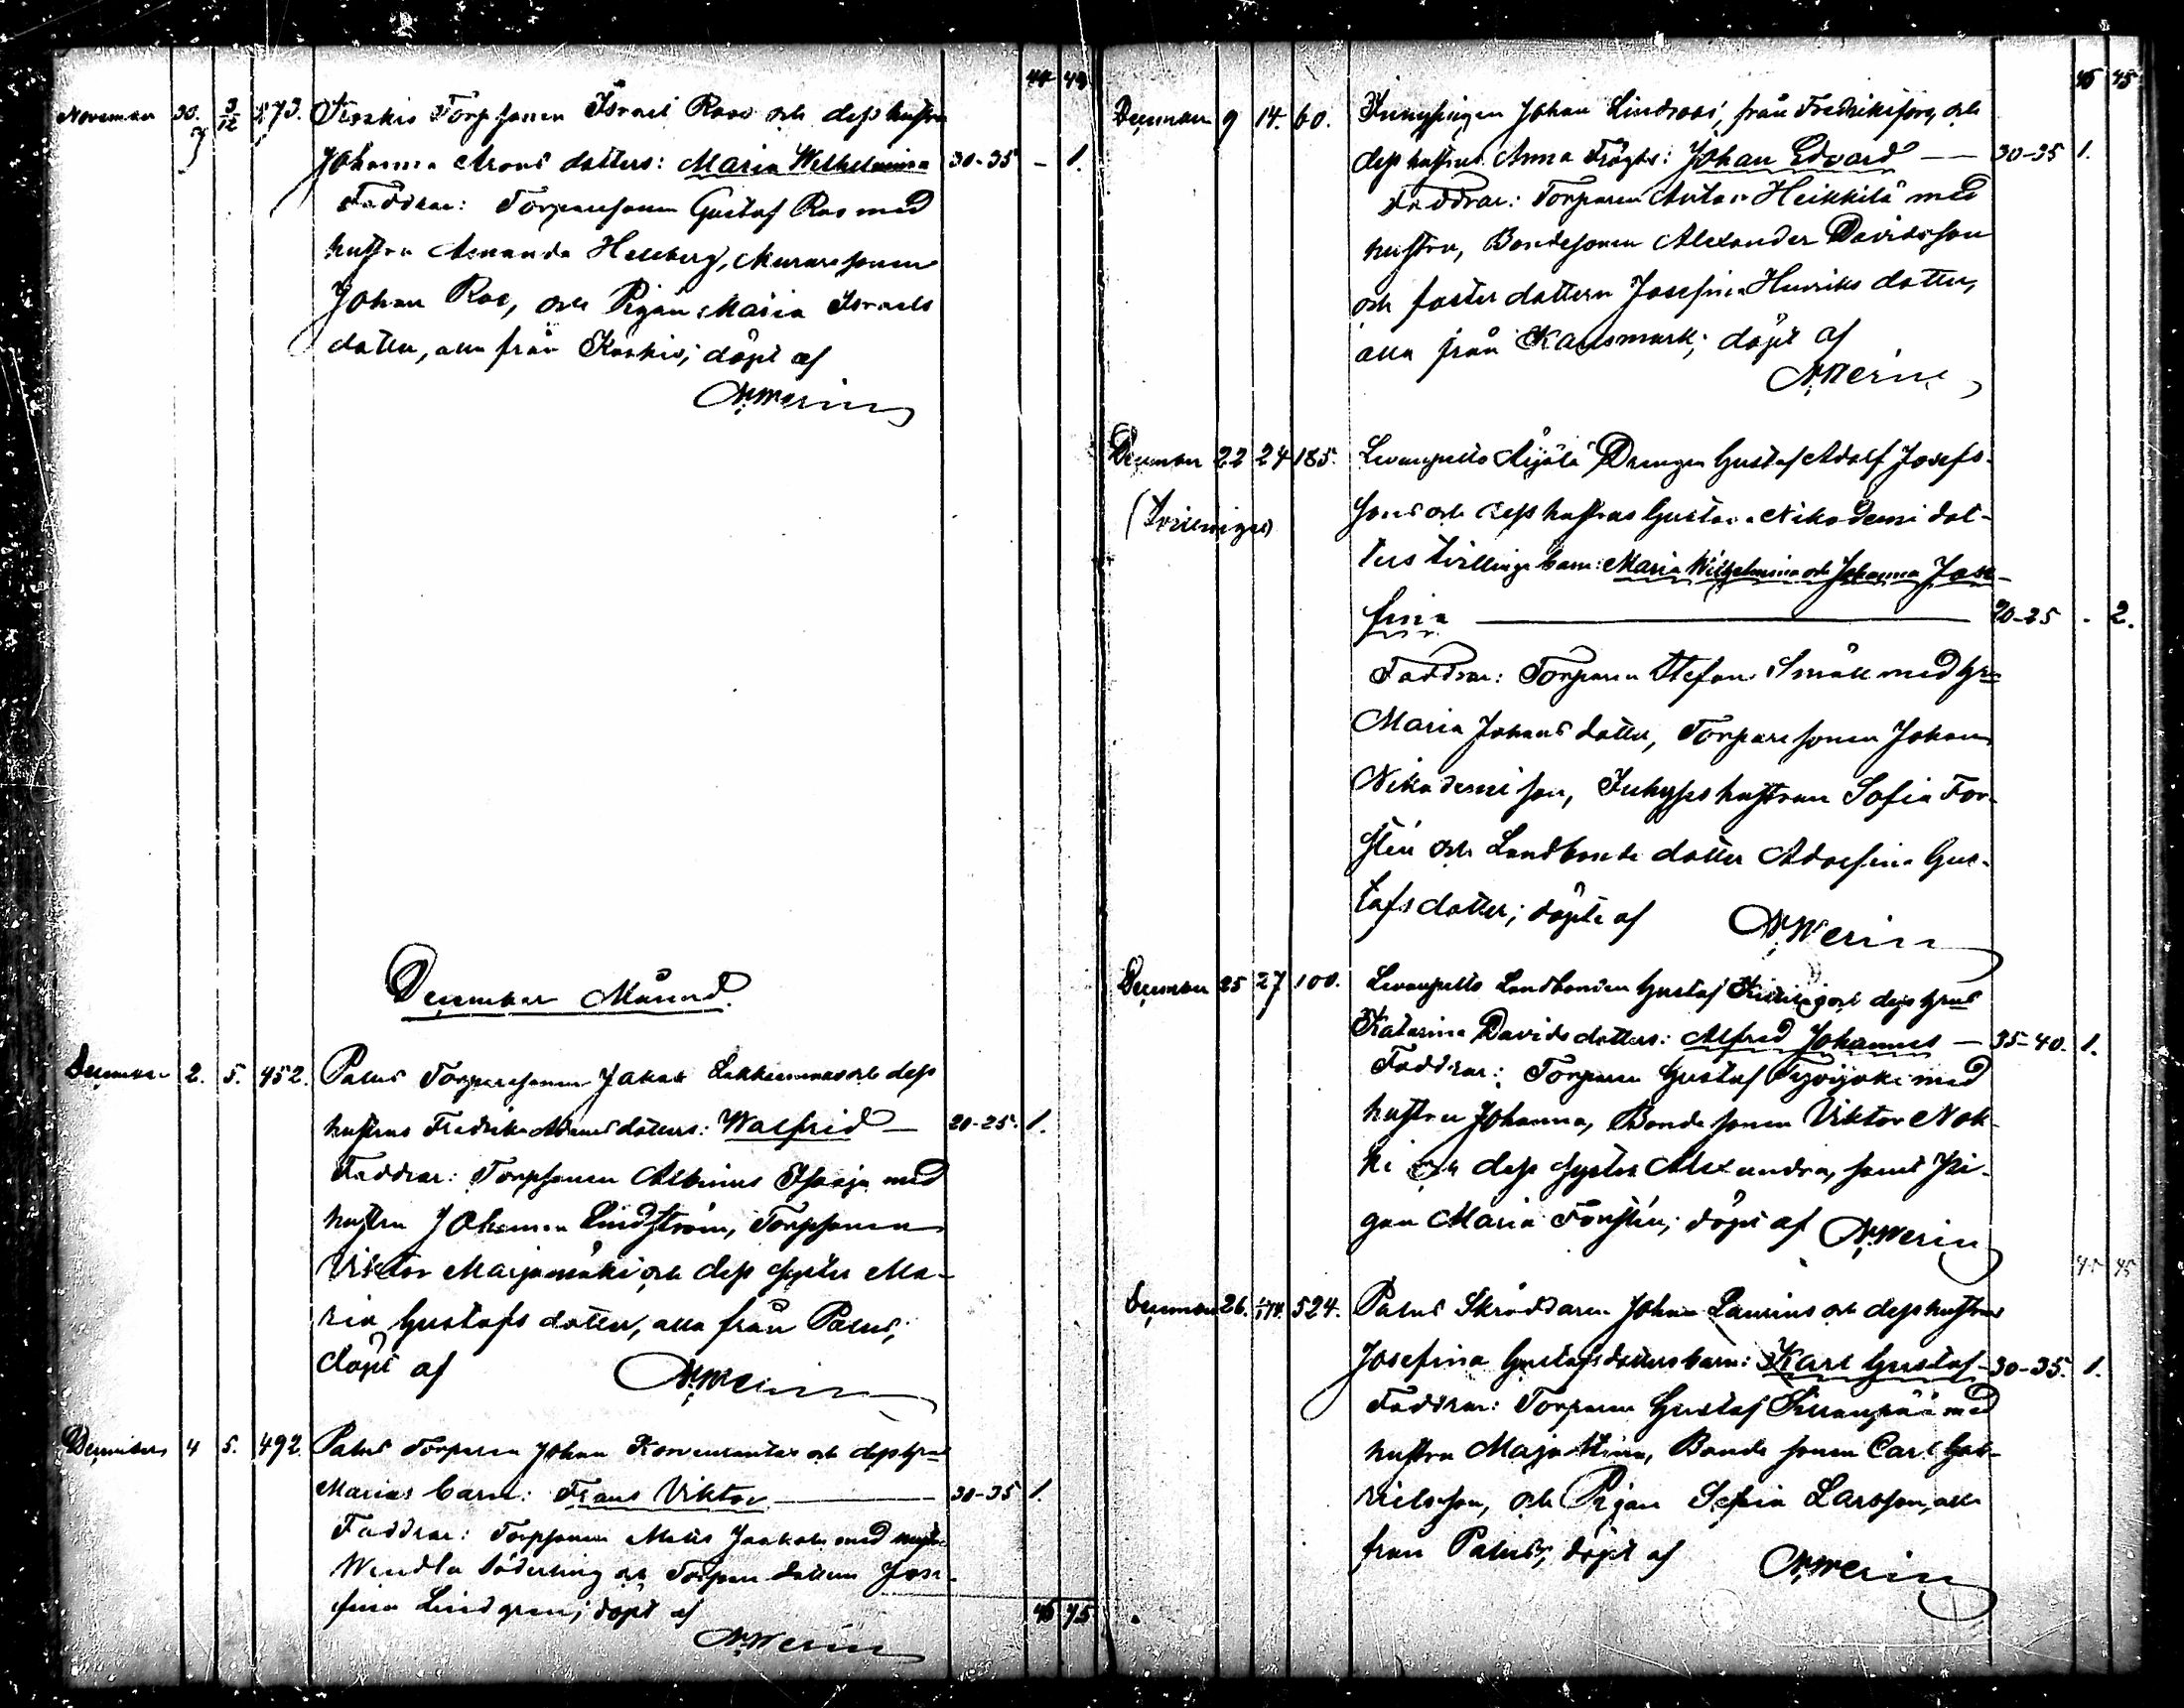 44 43
November 30. 3/12 273. Koskis Torpsonen Israel Roos och dess hustru
Johanna Arons dotters: Maria Wilhelmina 30-35 - 1.
Faddrar: Torparesonen Gustaf Ros med
hustru Amanda Hellberg, Muraresonen
Johan Ros, och Pigan Maria Israels
dotter, alla från Koskis; döpt af
N. Merin
December Månad.
December 2. 5. 452. Palus Torparesonen Jakob och dess
hustrus Fredrika dotters: Walfrid — 20-25. 1.
Faddrar: Torpsonen Albinus med
hustru Johanna Lindström, Torpsonen
Viktor Marjamäki och dess syster Ma-
ria Gustafs dotter, alla från Palus;
döpt af N. Merin
December 4 5. 492. Palus Torparen Johan och dess hrus
Marias barn: Frans Viktor — 30-35 1.
Faddrar: Torpsonen Matts Jaakola med hustru
Wendla Söderling och Torpare dottern Jose-
fina Lindgren; döpt af
N. Merin
45 45
45 45
December 9 14. 60. Inhysingen Johan Lindroos', från Fredriksfors, och
dess hustrus Anna Frögts: Johan Edvard — 30-35 1.
Faddrar: Torparen Anton Heikkilä med
hustru, Bondesonen Alexander Davidsson
och foster dottern Josefina Henriks dotter,
alla från Karlsmark; döpt af
N. Merin
December 22 24 185. Levanpelto Drengen Gustaf Adolf Josefs-
(Tvillingar) sons och dess hustrus Gustava Nikodemi dot-
ters tvillinge barn: Maria Wilhelmina och Johanna Jose-
fina — 20-25 - 2.
Faddrar: Torparen Stefan Småll med hru
Maria Johans dotter, Torpare sonen Johan
Nikodemi son, Inhyses hustrun Sofia For-
stén och Landbonde dotter Adolfina Gus-
tafs dotter; döpte af N. Merin
December 25 27 100. Levanpelto Landbonden Gustaf och dess hrus
Katarina Davids dotters: Alfred Johannes — 35-40. 1.
Faddrar: Torparen Gustaf Syvijoki med
hustru Johanna, Bonde sonen Viktor Nok-
ki och dess syster Alexandra, samt Pi-
gan Maria Forstén; döpt af N. Merin
45 45
December 26. 524. Palus Skräddaren Johan Laurius och dess hustrus
Josefina Gustafsdotters barn: Karl Gustaf — 30-35. 1.
Faddrar: Torparen Gustaf med
hustru Maja Stina, Bonde sonen Carl Gab-
rielsson, och Pigan Sofia Larsson, alla
från Palus; döpt af N. Merin